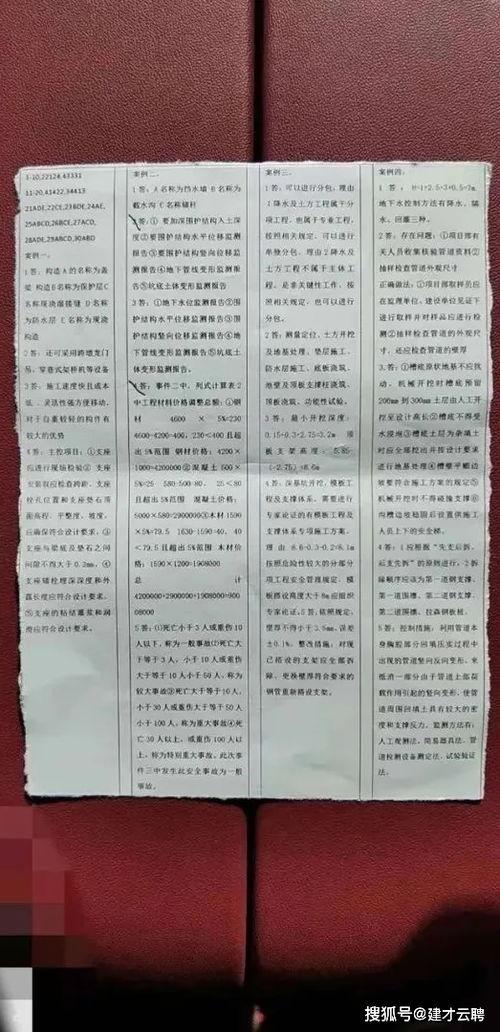 1-10,22124,43331
11-20,41422,34413
21ADE,22CE,23BDE,24AE,
25ABCD,26BCE,27ACD,
28ADE,29ABCD,30ABD
案例一：
1 答：构造 A 的名称为盖
梁 构造 B 名称为保护层 C
名称现浇湿接缝 D 名称
为防水层 E 名称为现浇
构造
2 答：还可采用跨墩龙门
吊、穿巷式架桥机等设备
3 答：施工速度快且成本
低、灵活性强方便移动，
对于自重较轻的构件有
较大的优势
4 答：主控项目：①支座
应进行现场检验②支座
安装取应检查跨距、支座
栓孔位置和支座垫石顶
面高程、平整度、坡度，
应确保符合设计要求。③
支座与梁底及垫石之间
间隙不得大于 0.2mm。④
支座锚栓埋深深度和外
露长度应符合设计要求。
⑤支座的粘结灌浆和润
滑应符合设计要求。
案例二：
1 答：A 名称为挡水墙 B 名称为
截水沟 C 名称锚杆
2 答：①要加深围护结构入土深
度②要围护结构水平位移监测
报告③要围护结构竖向位移监
测报告④地下管线变形监测报
告⑤坑底土体变形监测报告
3 答：①地下水位监测报告②围
护结构水平位移监测报告③围
护结构竖向位移监测报告④地
下管线变形监测报告⑤坑底土
体变形监测报告。
4 答：事件二中，列式计算表 2
中工程材料价格调整总额：①钢
材 4600 × 5%=230
4600-4200=400，230<400 且超
出 5%范围 钢材价格：4200×
1000=4200000②混凝土 500×
5%=25 580-500=80，25<80
且超出 5%范围 混凝土价格：
5000×580=2900000③木材 1590
×5%=79.5 1630-1590=40，40
<79.5 且超出 5%范围 木材价
格：1590×1200=1908000
总计
4200000+2900000+1908000=900
08000
5 答：①死亡小于 3 人或重伤 10
人以下，称为一般事故②死亡大
于等于 3 人，小于 10 人或重伤
大于等于 10 人小于 50 人，称为
较大事故③死亡大于等于 10 人，
小于 30 人或重伤大于等于 50 人
小于 100 人，称为重大事故④死
亡 30 人以上，或重伤 100 人以
上，称为特别重大事故。此次事
件三中发生此安全事故为一般
事故。
案例三：
1 答：可以进行分包；理由
1 降水及土方工程属于分
项工程，也属于专业工程，
按照相关规定，可以进行
单独分包。理由 2 降水及
土方工程不属于主体工
程，是非关键性工作，按
照相关规定，也可以进行
分包。
2 答：测量定位、土方开挖
及地基处理、垫层施工、
防水层施工、底板浇筑、
地壁及顶板支撑柱浇筑、
顶板浇筑、功能性试验。
3 答：最小开挖深度：
0.15+0.3+2.75=3.2m 顶
板支架高度：5.85-
(-2.75) =8.6m
4 答：深基坑开挖、模板工
程及支撑体系，需要进行
专家论证的有模板工程及
支撑体系专项施工方案。
理由 8.6-0.3-0.2=8.1m
按照危险性较大的分部分
项工程安全管理规定，模
板搭设高度大于 8m 应组织
专家论证。5 答：依照规定，
壁厚不得小于 3.5mm，误差
±0.1%，整改措施：对现
已搭设的支架应全部拆
除，更换壁厚符合要求的
钢管重新搭设支架。
案例四：
1 答：H=1+2.5+3+0.5=7m，
地下水控制方法有降水、隔
水、回灌三种。
2 答：存在问题：①项目部有
关人员收集核验管道资料②
抽样检查管道外观尺寸
正确做法：①项目部取样员应
在监理单位、建设单位见证下
进行取样并对样品应进行检
测②抽样检查管道的外观尺
寸，还应检查管道的壁厚
3 答：①槽底原状地基不应扰
动，机械开挖时槽底预留
200mm 到 300mm 土层由人工开
挖至设计高程②槽底不得受
水浸泡③槽底土层为杂填土
时应全部挖出并按设计要求
进行地基处理④槽壁平顺边
坡要符合施工方案的规定⑤
机械开挖时不得碰撞支撑⑥
沟槽边坡稳固后设置供施工
人员上下的安全梯。
4 答：1 应根据“先支后拆，
后支先拆”的原则进行，2 拆
除顺序应该为第一道钢支撑、
第一道围檩、第二道钢支撑、
第二道围檩、拉森钢板桩。
5 答：控制措施：利用管道本
身胸腔部分回填压实过程中
出现的管道竖向反向变形，来
抵消一部分由于管道上部荷
载作用引起的竖向变形，使管
道周围回填土具有较大的密
度和支撑反力。监测方法有：
人工观测法，简易器具法、管
道检测设备测定法、试验验证
法。
搜狐号@建才云聘